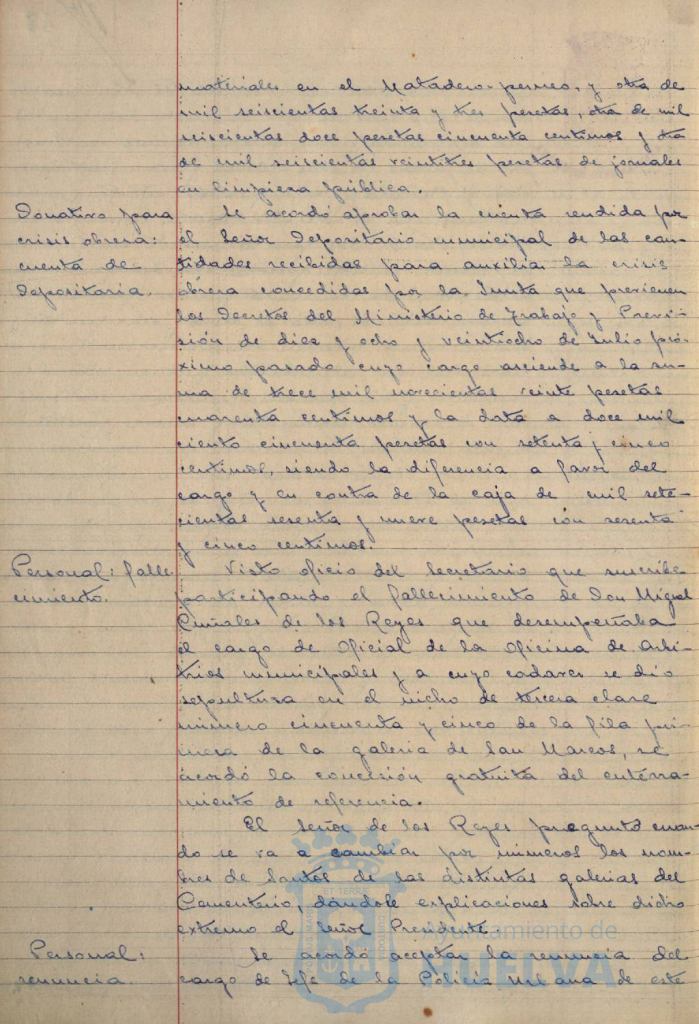 materiales en el Matadero-perreo, y otra de
mil seiscientas treinta y tres pesetas, otra de mil
seiscientas doce pesetas cincuenta centimos y otra
de mil seiscientas veintitres pesetas de jornales
en limpieza pública.
Donativo para
crisis obrera:
cuenta de
Depositaria.
Se acordó aprobar la cuenta rendida por
el Señor Depositario municipal de las can-
tidades recibidas para auxiliar la crisis
obrera concedidas por la Junta que previenen
los Decretos del Ministerio de Trabajo y Previ-
sión de diez y ocho y veintiocho de Julio pró-
ximo pasado cuyo cargo asciende a la su-
ma de trece mil novecientas veinte pesetas
cuarenta centimos y la data a doce mil
ciento cincuenta pesetas con setenta y cinco
centimos, siendo la diferencia a favor del
cargo y en contra de la caja de mil sete-
cientas sesenta y nueve pesetas con sesenta
y cinco centimos.
Personal: falle
cimiento.
Visto oficio del Secretario que suscribe
participando el fallecimiento de Don Miguel
de los Reyes que desempeñaba
el cargo de Oficial de la Oficina de Arbi-
trios municipales y a cuyo cadaver se dió
sepultura en el nicho de tercera clase
número cincuenta y cinco de la fila pri-
mera de la galeria de San Marcos, se
acordó la concesión gratuita del enterra-
miento de referencia.
El Señor de los Reyes preguntó cuan-
do se va a cambiar por números los nom-
bres de Santos de las distintas galerias del
Cementerio, dándole explicaciones sobre dicho
extremo el Señor Presidente.
Personal:
renuncia.
Se acordó aceptar la renuncia del
cargo de Jefe de la Policía Urbana de este
Ayuntamiento de
HUELVA